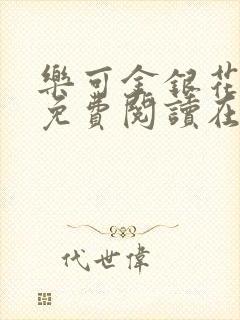 樂可金銀花
免費閱讀在
代世偉